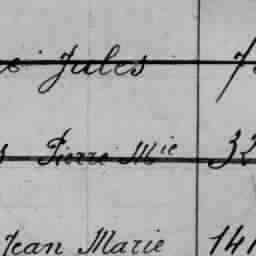 Jules
Pierre Mie 32
Jean Marie 141